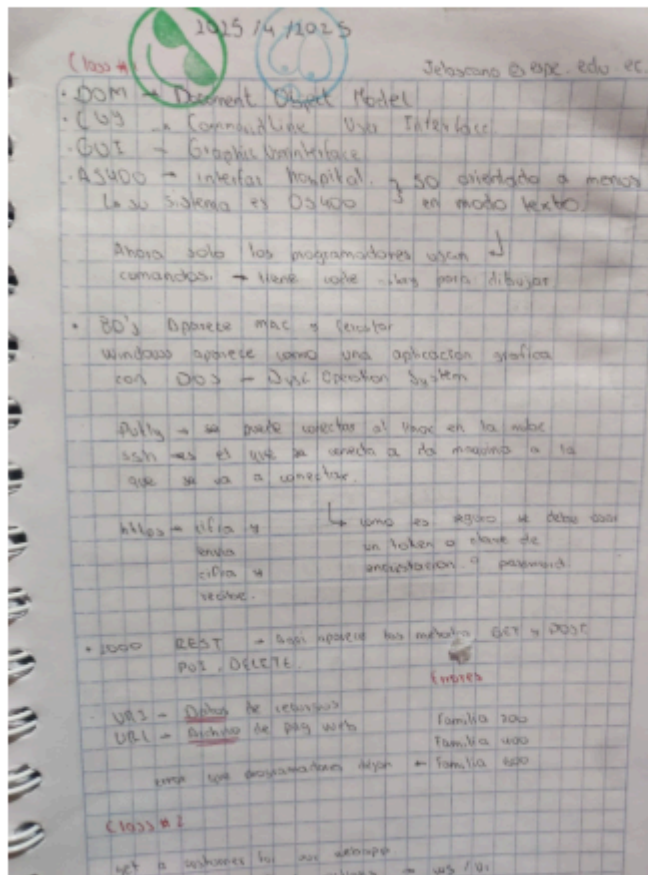 2025/4/2025
Class #1
Jelascano @ espe.edu.ec
· DOM → Document Object Model
· CUY → CommandLine User Interface
· GUI → Graphic Userinterface
· AS400 → interfaz hospital. } SO orientado a menos
↳ su sistema es OS400 } en modo texto.
Ahora solo los programadores usan
comandos. → tiene para dibujar
· 80's Aparece mac y
Windows aparece como una aplicación grafica
con DOS → Disc Operation System
Putty → se puede conectar al en la nube
ssh → es el que se conecta a la maquina a la
que se va a conectar.
https → cifra y
envia
cifra y
recibe.
↳ como es seguro se debe usar
un token o clave de
encriptacion o password.
· 2000 REST → Aqui aparece los metodos GET y POST
PUT, DELETE.
Errores
· URI → Datos de recursos
URL → Archivo de pag web
Familia 200
Familia 400
error que programadores dejan ← Familia 500
Class #2
get a customer for our webapp
→ ws /